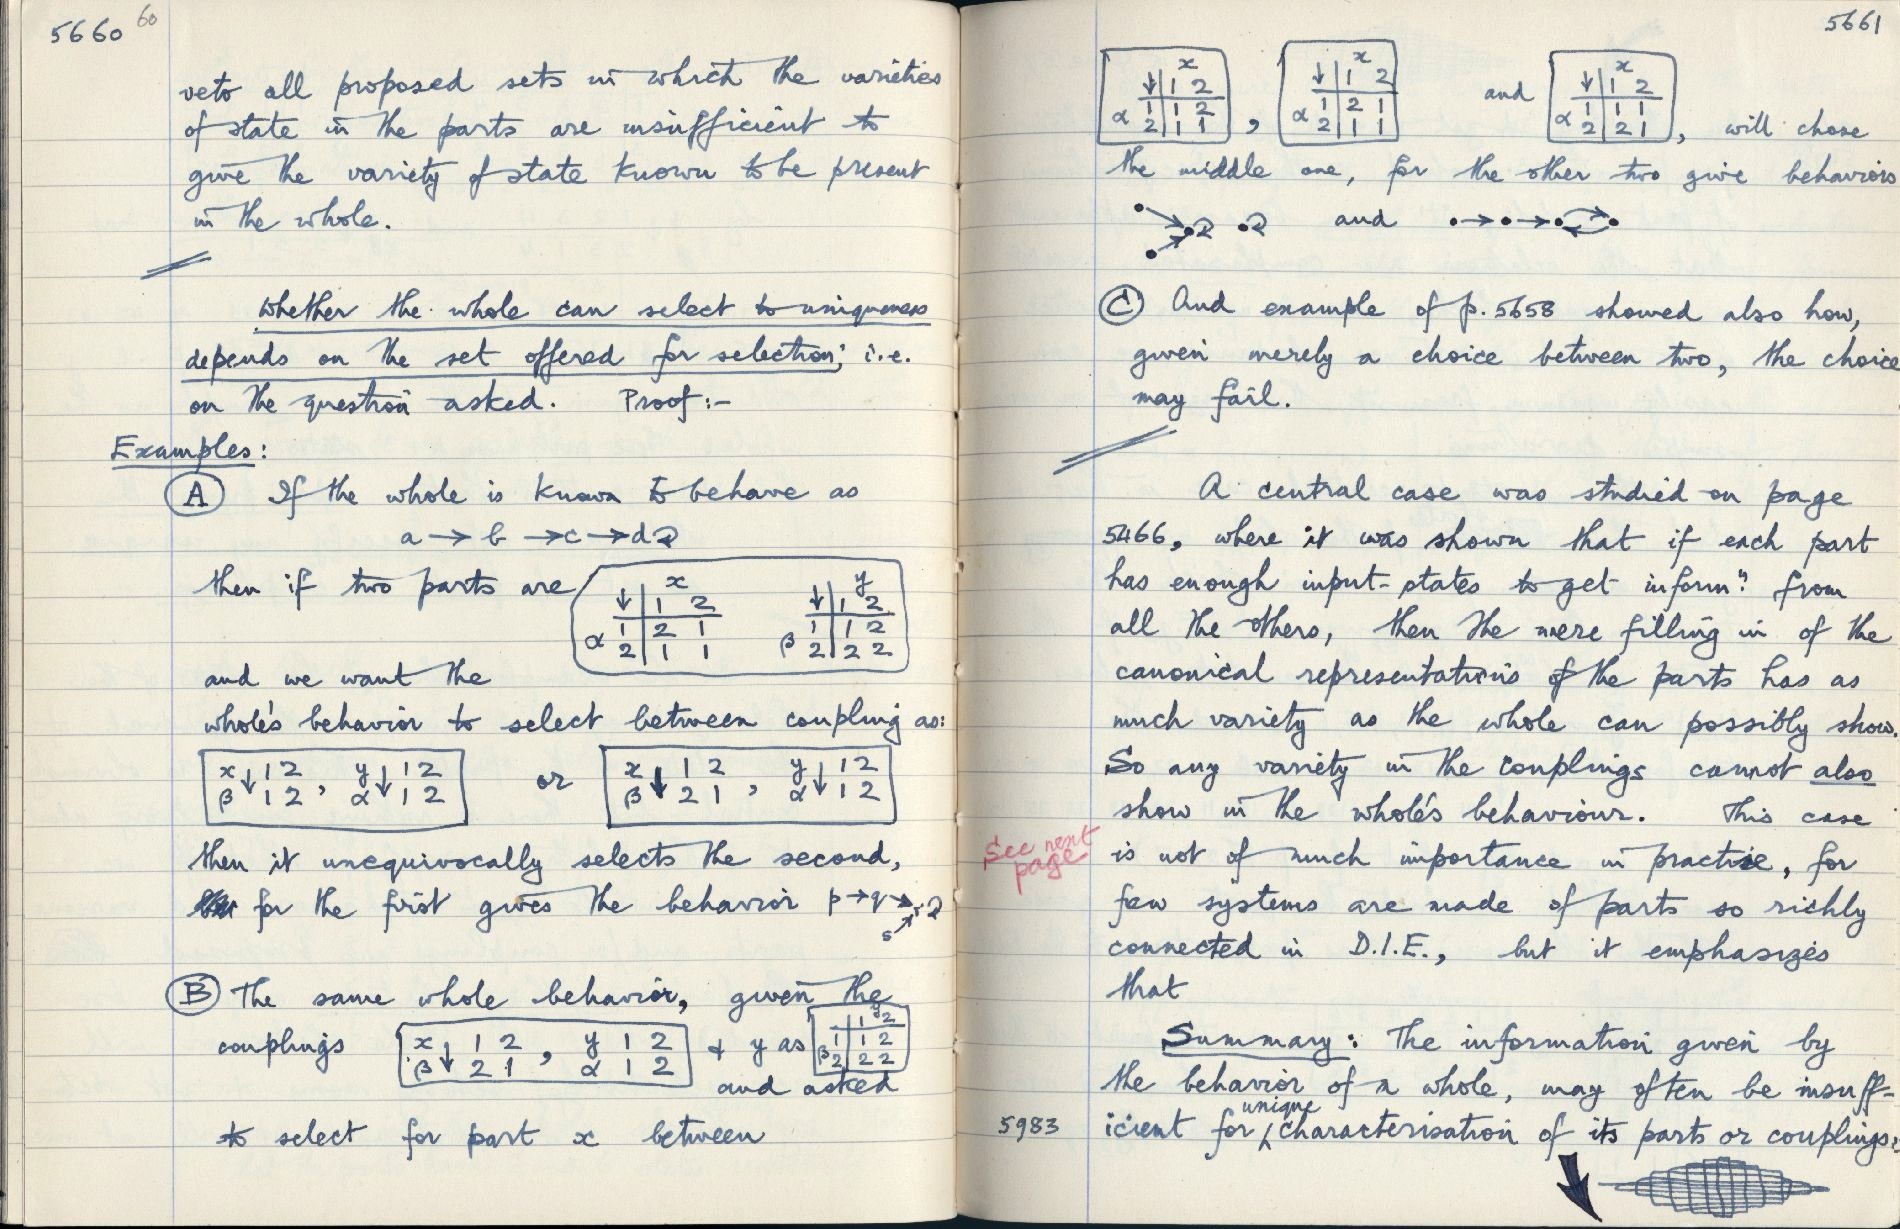 5660 60
veto all proposed sets in which the varieties
of state in the parts are insufficient to
give the variety of state known to be present
in the whole.
Whether the whole can select to uniqueness
depends on the set offered for selection; i.e.
on the question asked. Proof:-
Examples:
A If the whole is known to behave as
a → b → c → d
then if two parts are
x
↓ 1 2
α 1 2 1
2 1 1
y
↓ 1 2
β 1 1 2
2 2 2
and we want the
whole's behavior to select between coupling as:
x ↓ 1 2 , y ↓ 1 2
β 1 2 α 1 2
or
x ↓ 1 2 , y ↓ 1 2
β 2 1 α 1 2
then it unequivocally selects the second,
for the first gives the behavior p → q → r
s
B The same whole behavior, given the
couplings
x ↓ 1 2 , y 1 2
β 2 1 α 1 2
& y as
y
1 2
β 1 1 2
2 2 2
and asked
to select for part x between
5661
x
↓ 1 2
α 1 1 2
2 1 1
,
x
↓ 1 2
α 1 2 1
2 1 1
and
x
↓ 1 2
α 1 1 1
2 2 1
, will chose
the middle one, for the other two give behaviors
and
C And example of p. 5658 showed also how,
given merely a choice between two, the choice
may fail.
A central case was studied on page
5466, where it was shown that if each part
has enough input-states to get inform" from
all the others, then the mere filling in of the
canonical representations of the parts has as
much variety as the whole can possibly show.
So any variety in the couplings cannot also
show in the whole's behaviour. This case
See next
page
is not of much importance in practise, for
few systems are made of parts so richly
connected in D.I.E., but it emphasizes
that
Summary: The information given by
the behavior of a whole, may often be insuff-
5983 icient for unique characterisation of its parts or couplings.